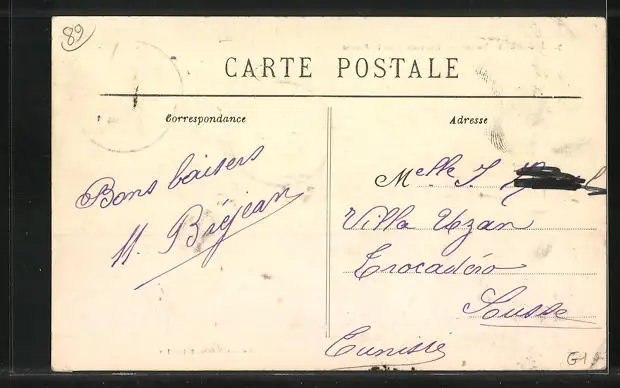 89
CARTE POSTALE
Correspondance
Adresse
Bons baisers
M. Bréjean
Melle J.
Villa Uzan
Trocadéro
Susse
Tunisie
G1